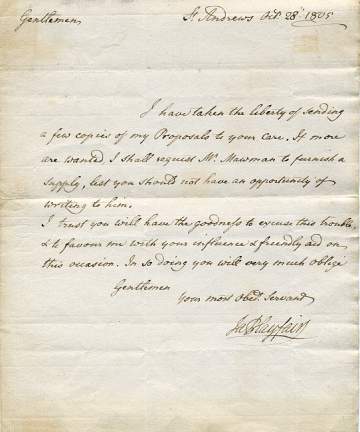 Gentlemen
St. Andrews Octr. 28th 1805
I have taken the liberty of sending
a few copies of my Proposals to your care. If more
are wanted I shall request Mr. Mawman to furnish a
supply, lest you should not have an opportunity of
writing to him.
I trust you will have the goodness to excuse this trouble,
& to favour me with your influence & friendly aid on
this occasion. In so doing you will very much oblige
Gentlemen
Your most obedt. Servant
Ja Playfair